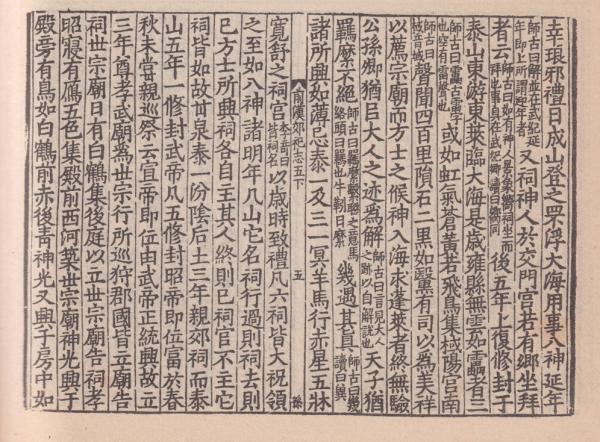 幸琅邪禮日成山登之罘浮大海用事八神延年
師古曰解並在武紀延年即上所謂延年者又祠神人於交門宮若有鄉坐拜
者云師古曰如有神人景象嚮祠坐而拜也事具在武紀鄉讀曰嚮後五年上復修封于
泰山東游東萊臨大海是歲雍縣無雲如靁者三
師古曰靁古雷字也空有雷聲也或如虹氣蒼黃若飛鳥集棫陽宮南
師古曰棫音域聲聞四百里隕石二黑如黳有司以為美祥
以薦宗廟而方士之候神入海求蓬萊者終無驗
公孫卿猶以大人之迹為解師古曰言見大人之跡以自解說也天子猶
羈縻不絕師古曰羈縻繫聯之意馬絡頭曰羈也牛靷曰縻幾遇其真師古曰幾讀曰冀
諸所興如薄忌泰一及三一冥羊馬行赤星五牀
前漢郊祀志五下 五
寬舒之祠官李奇曰皆祠名以歲時致禮凡六祠皆大祝領
之至如八神諸明年凡山它名祠行過則祠去則
已方士所興祠各自主其人終則已祠官不主它
祠皆如故甘泉泰一汾陰后土三年親郊祠而泰
山五年一修封武帝凡五修封昭帝即位富於春
秋未嘗親巡祭云宣帝即位由武帝正統興故立
三年尊孝武廟為世宗行所巡狩郡國皆立廟告
祠世宗廟日有白鶴集後庭以立世宗廟告祠孝
昭寢有鴈五色集殿前西河築世宗廟神光興于
殿旁有鳥如白鶴前赤後青神光又興于房中如